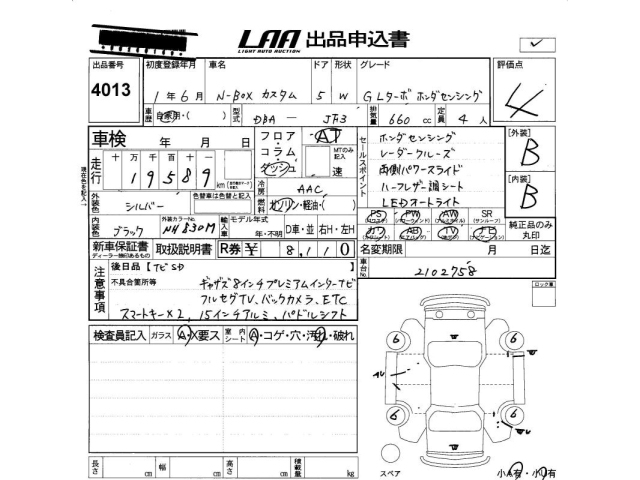 LAA 出品申込書
LIGHT AUTO AUCTION
出品番号 初度登録年月 車名 ドア 形状 グレード 評価点
4013 1年6月 N-BOX カスタム 5 W GLターボ ホンダセンシング 4
車歴 自家用・( ) 型式 DBA — JF3 排気量 660 cc 定員 4人
車検 年 月 日
フロア・コラム・ダッシュ AT MTのみ記入 速
走行 十万千百十一
19589 km
冷房 AAC
燃料 ガソリン・軽油・( )
外装色 シルバー 色替車は色替と記入
内装色 ブラック 外装カラーNo. NH830M 輸入車 モデル年式 年・不明 D車・並 右H・左H
セールスポイント
ホンダセンシング
レーダークルーズ
両側パワースライド
ハーフレザー調シート
LEDオートライト
[外装] B
[内装] B
PS PW AW SR
(サンルーフ)
カワ AB TV ナビ
純正品のみ丸印
新車保証書 取扱説明書 R券 ¥ 8,110 名変期限 月 日迄
ディーラー捺印あるもの
車台No. 2102758
注意事項
後日品【ナビSD
不具合箇所等 ギャザズ8インチプレミアムインターナビ
フルセグTV、バックカメラ、ETC
スマートキー×2、15インチアルミ、パドルシフト
ロック車
検査員記入 ガラス A・X要ス 室内シート A・コゲ・穴・汚れ・破れ
6 6
6 6
スペア
小A有・小U有
長さ cm 幅 cm 高さ cm 積載量 kg